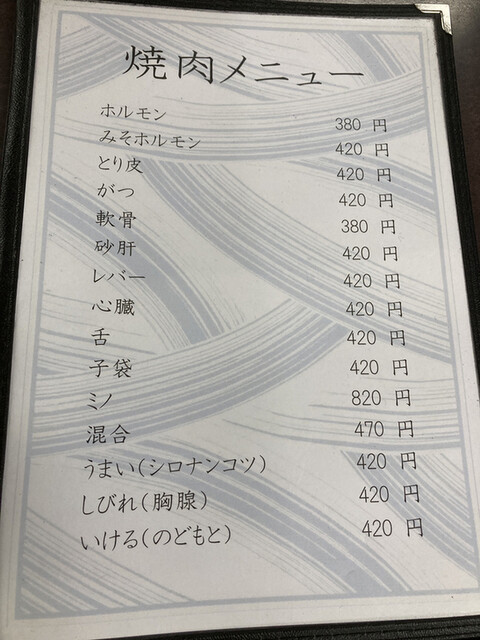 焼肉メニュー
ホルモン 380 円
みそホルモン 420 円
とり皮 420 円
がつ 420 円
軟骨 380 円
砂肝 420 円
レバー 420 円
心臓 420 円
舌 420 円
子袋 420 円
ミノ 820 円
混合 470 円
うまい(シロナンコツ) 420 円
しびれ(胸腺) 420 円
いける(のどもと) 420 円